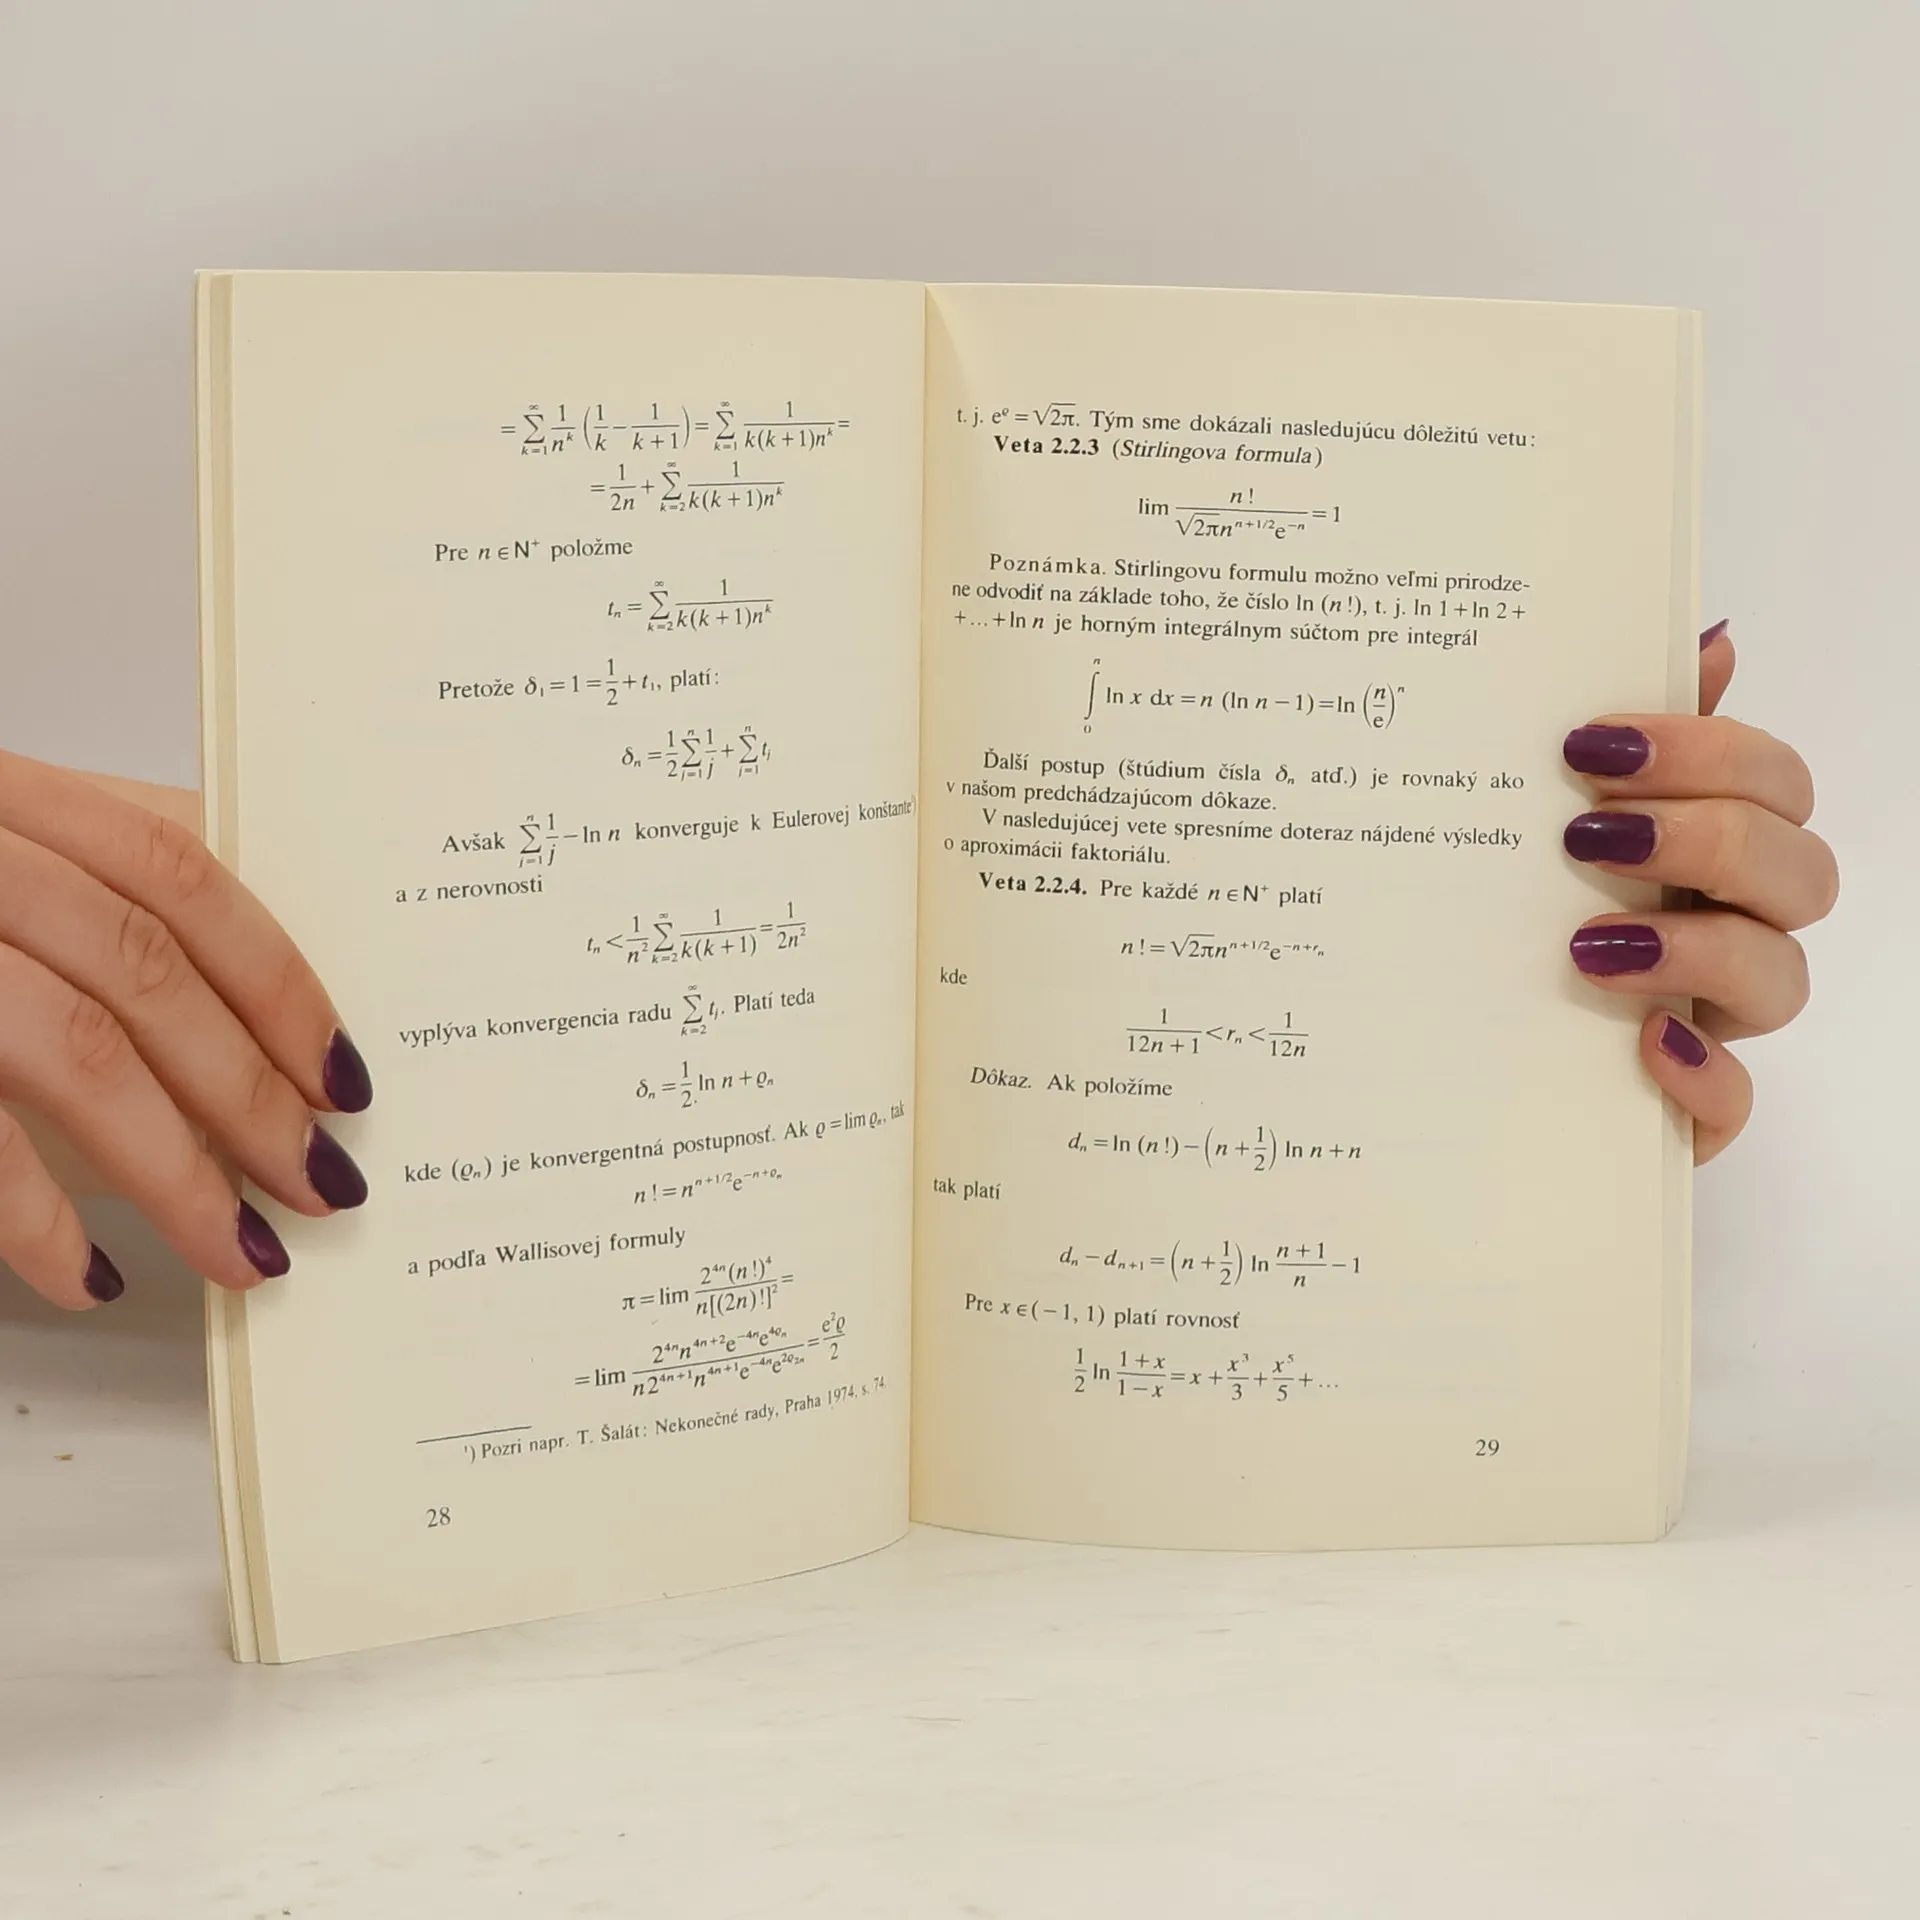 = \sum_{k=1}^{∞} \frac{1}{n^k} \left( \frac{1}{k} - \frac{1}{k+1} \right) = \sum_{k=1}^{∞} \frac{1}{k(k+1)n^k} =
= \frac{1}{2n} + \sum_{k=2}^{∞} \frac{1}{k(k+1)n^k}
Pre n ∈ N⁺ položme
t_n = \sum_{k=2}^{∞} \frac{1}{k(k+1)n^k}
Pretože δ_1 = 1 = \frac{1}{2} + t_1, platí:
δ_n = \frac{1}{2} \sum_{j=1}^{n} \frac{1}{j} + \sum_{j=1}^{n} t_j
Avšak \sum_{j=1}^{n} \frac{1}{j} − ln n konverguje k Eulerovej konštante¹)
a z nerovnosti
t_n < \frac{1}{n^2} \sum_{k=2}^{∞} \frac{1}{k(k+1)} = \frac{1}{2n^2}
vyplýva konvergencia radu \sum_{k=2}^{∞} t_j. Platí teda
δ_n = \frac{1}{2.} ln n + ϱ_n
kde (ϱ_n) je konvergentná postupnosť. Ak ϱ = lim ϱ_n, tak
n! = n^{n+1/2} e^{−n+ϱ_n}
a podľa Wallisovej formuly
π = lim \frac{2^{4n}(n!)^4}{n[(2n)!]^2} =
= lim \frac{2^{4n} n^{4n+2} e^{−4n} e^{4ϱ_n}}{n 2^{4n+1} n^{4n+1} e^{−4n} e^{2ϱ_{2n}}} = \frac{e^2ϱ}{2}
¹) Pozri napr. T. Šalát: Nekonečné rady, Praha 1974, s. 74
28
t. j. e^ϱ = √2π. Tým sme dokázali nasledujúcu dôležitú vetu:
Veta 2.2.3 (Stirlingova formula)
lim \frac{n!}{√2π n^{n+1/2} e^{−n}} = 1
Poznámka. Stirlingovu formulu možno veľmi prirodze-
ne odvodiť na základe toho, že číslo ln (n!), t. j. ln 1 + ln 2 +
+ ... + ln n je horným integrálnym súčtom pre integrál
\int_0^n ln x dx = n (ln n − 1) = ln \left( \frac{n}{e} \right)^n
Ďalší postup (štúdium čísla δ_n atď.) je rovnaký ako
v našom predchádzajúcom dôkaze.
V nasledujúcej vete spresníme doteraz nájdené výsledky
o aproximácii faktoriálu.
Veta 2.2.4. Pre každé n ∈ N⁺ platí
n! = √2π n^{n+1/2} e^{−n+r_n}
kde
\frac{1}{12n+1} < r_n < \frac{1}{12n}
Dôkaz. Ak položíme
d_n = ln (n!) − \left( n + \frac{1}{2} \right) ln n + n
tak platí
d_n − d_{n+1} = \left( n + \frac{1}{2} \right) ln \frac{n+1}{n} − 1
Pre x ∈ (−1, 1) platí rovnosť
\frac{1}{2} ln \frac{1+x}{1−x} = x + \frac{x^3}{3} + \frac{x^5}{5} + ...
29